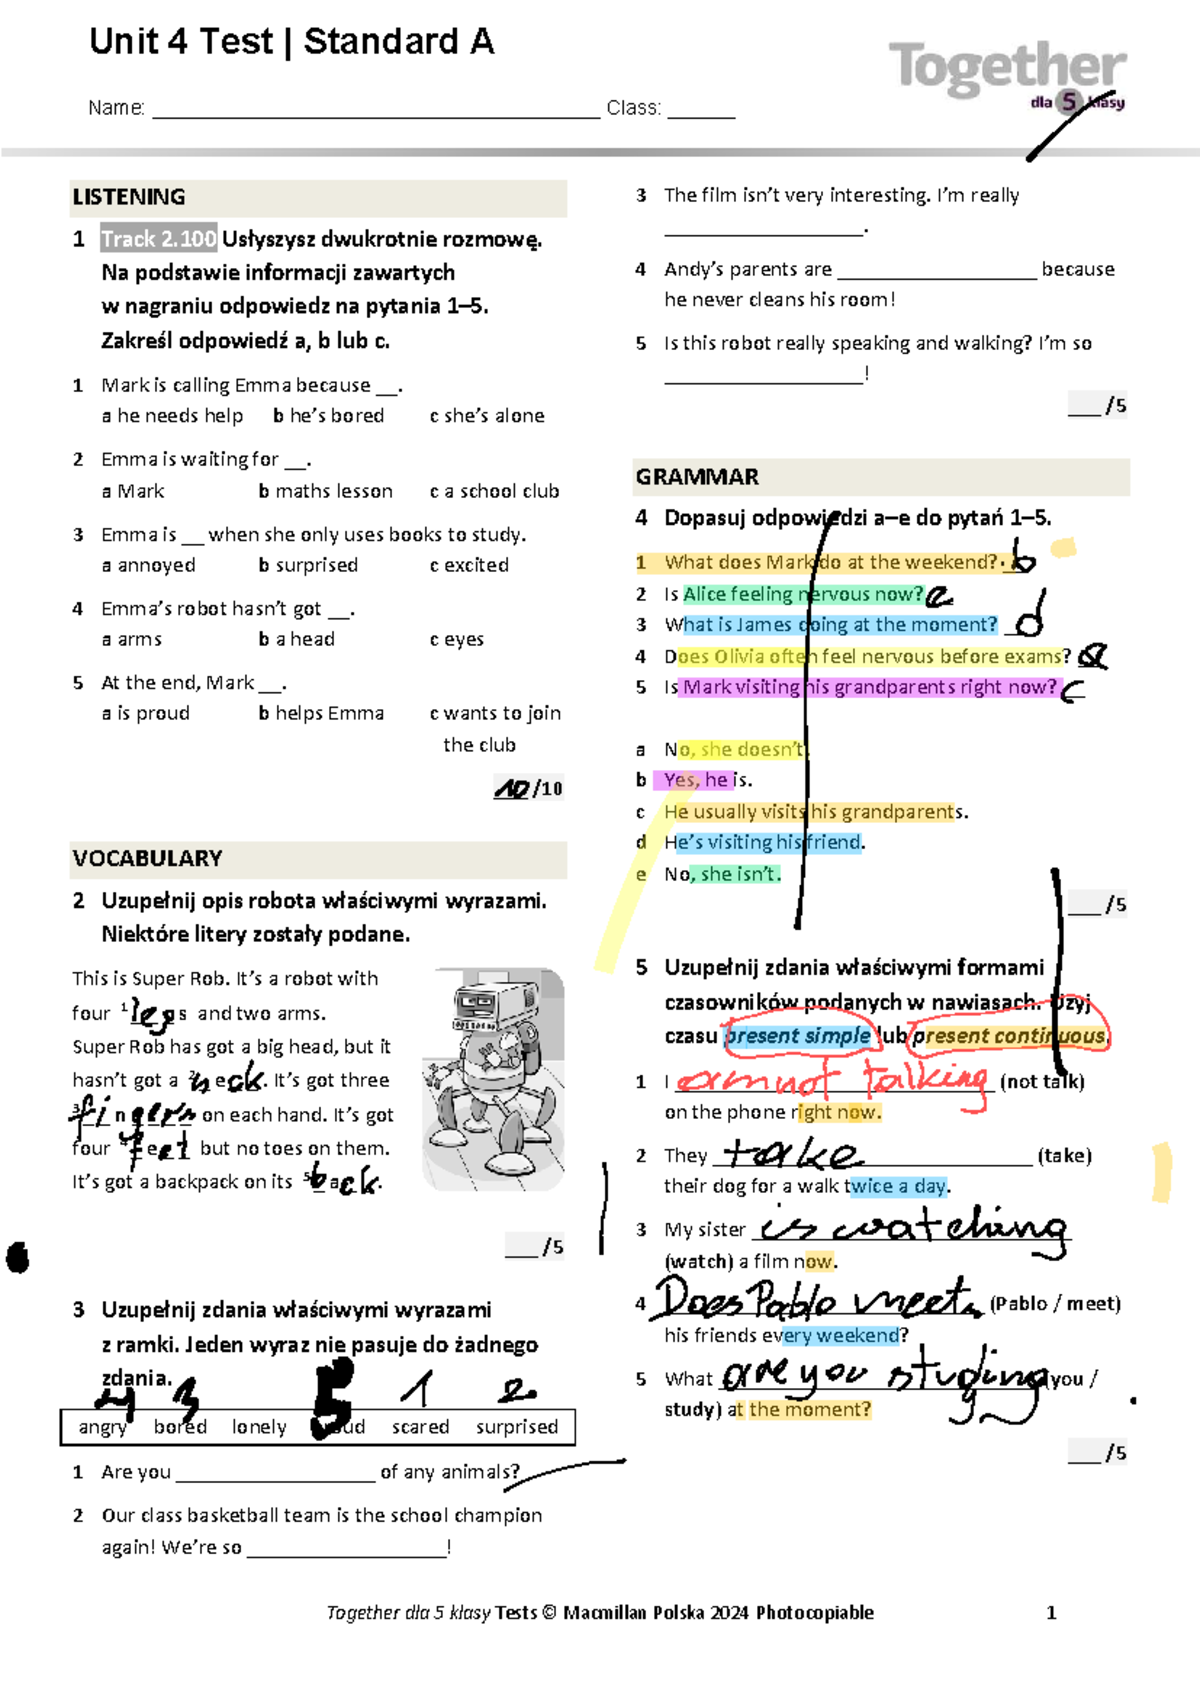 Unit 4 Test | Standard A
Together
dla 5 klasy
Name: ______ Class: ______
LISTENING
1 Track 2.100 Usłyszysz dwukrotnie rozmowę.
Na podstawie informacji zawartych
w nagraniu odpowiedz na pytania 1–5.
Zakreśl odpowiedź a, b lub c.
1 Mark is calling Emma because __.
a he needs help b he's bored c she's alone
2 Emma is waiting for __.
a Mark b maths lesson c a school club
3 Emma is __ when she only uses books to study.
a annoyed b surprised c excited
4 Emma's robot hasn't got __.
a arms b a head c eyes
5 At the end, Mark __.
a is proud b helps Emma c wants to join
the club
10 /10
VOCABULARY
2 Uzupełnij opis robota właściwymi wyrazami.
Niektóre litery zostały podane.
This is Super Rob. It's a robot with
four 1 legs and two arms.
Super Rob has got a big head, but it
hasn't got a 2 neck. It's got three
3 fingers on each hand. It's got
four 4 feet but no toes on them.
It's got a backpack on its 5 back.
___ /5
3 Uzupełnij zdania właściwymi wyrazami
z ramki. Jeden wyraz nie pasuje do żadnego
zdania.
4 3 5 1 2
angry bored lonely proud scared surprised
1 Are you ______ of any animals?
2 Our class basketball team is the school champion
again! We're so ______!
3 The film isn't very interesting. I'm really
______.
4 Andy's parents are ______ because
he never cleans his room!
5 Is this robot really speaking and walking? I'm so
______!
___ /5
GRAMMAR
4 Dopasuj odpowiedzi a–e do pytań 1–5.
1 What does Mark do at the weekend? b
2 Is Alice feeling nervous now? e
3 What is James doing at the moment? d
4 Does Olivia often feel nervous before exams? a
5 Is Mark visiting his grandparents right now? c
a No, she doesn't.
b Yes, he is.
c He usually visits his grandparents.
d He's visiting his friend.
e No, she isn't.
___ /5
5 Uzupełnij zdania właściwymi formami
czasowników podanych w nawiasach. Użyj
czasu present simple lub present continuous.
1 I am not talking (not talk)
on the phone right now.
2 They take (take)
their dog for a walk twice a day.
3 My sister is watching
(watch) a film now.
4 Does Pablo meets (Pablo / meet)
his friends every weekend?
5 What are you studing (you /
study) at the moment?
___ /5
Together dla 5 klasy Tests © Macmillan Polska 2024 Photocopiable 1